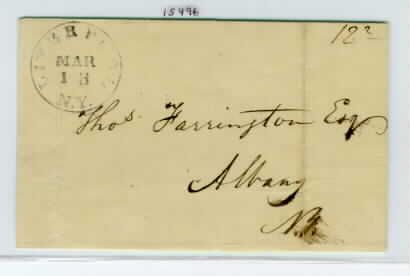 15496
12 2
MAR
13
N.Y.
Thos Farrington Esq
Albany
N.Y.